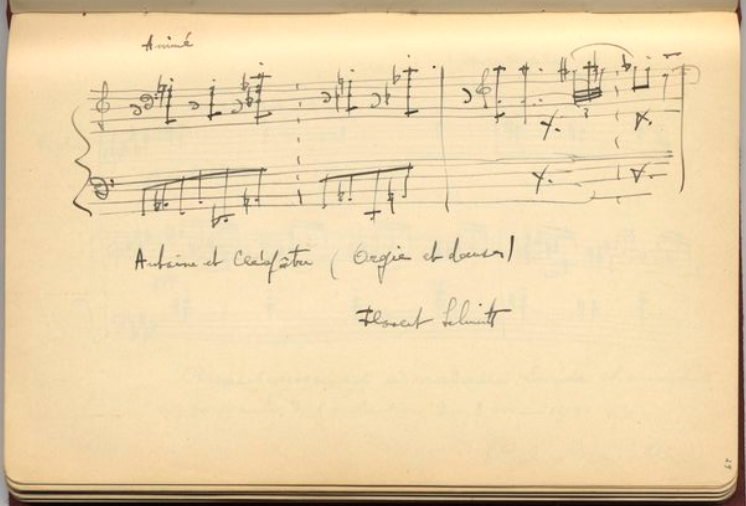 Animé
Antoine et Cléopâtre (Orgie et danses)
Florent Schmitt
29